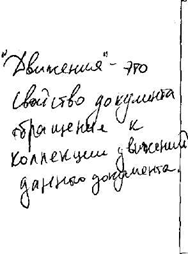 "Движения" - это
свойство документа
обращения к
коллекции движений
данного документа.